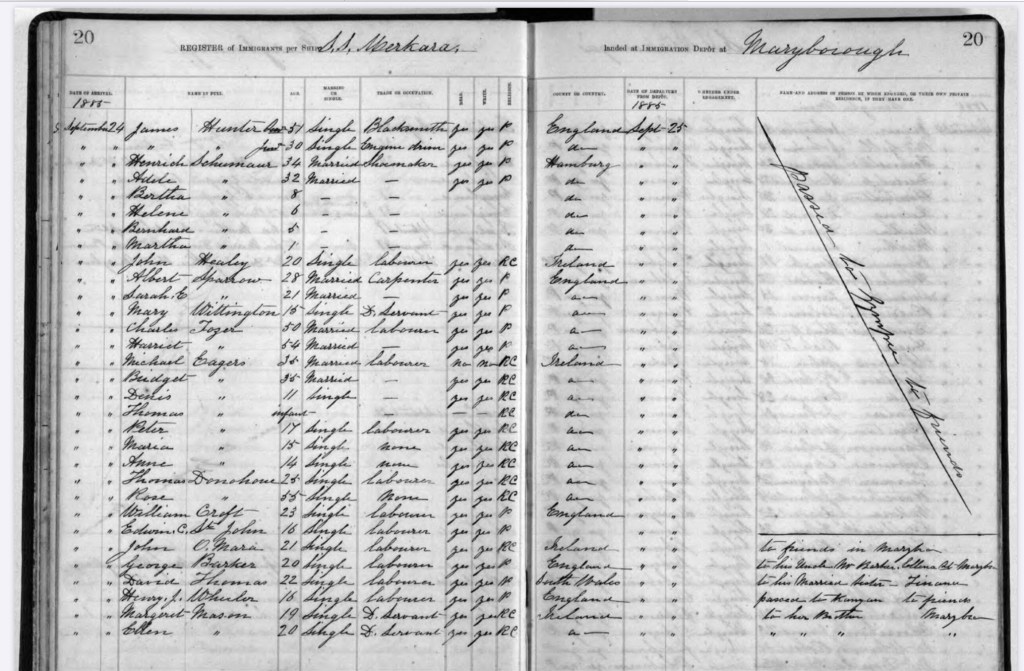 20
REGISTER of IMMIGRANTS per Ship S.S. Merkara. landed at IMMIGRATION DEPÔT at Maryborough
20
DATE OF ARRIVAL. NAME IN FULL. AGE. MARRIED OR SINGLE. TRADE OR OCCUPATION. READ. WRITE. RELIGION. COUNTY OR COUNTRY. DATE OF DEPARTURE FROM DEPÔT. WHETHER UNDER ENGAGEMENT. NAME AND ADDRESS OF PERSON BY WHOM ENGAGED, OR THEIR OWN PRIVATE RESIDENCE, IF THEY HAVE ONE.
1885 1885
September 24 James Hunter 51 Single Blacksmith yes yes P England Sept 25
" " " " Junr 30 Single Engine driver yes yes P do " "
" " Henrich Schumaur 34 Married Shoemaker yes yes P Hamburg " "
" " Adele " 32 Married — yes yes P do " "
" " Bertha " 8 — — do " "
" " Helene " 6 — — do " "
" " Bernhard " 5 — — do " "
" " Martha " 1 — — do " "
" " John Healey 20 Single labourer yes yes RC Ireland " "
" " Albert Sparrow 28 Married Carpenter yes yes P England " "
" " Sarah E " 21 Married — yes yes P do " "
" " Mary Wittington 15 Single D. Servant yes yes P do " "
" " Charles Tozer 50 Married labourer yes yes P do " "
" " Harriet " 54 Married — yes yes P do " "
" " Michael Eagers 35 Married labourer no no RC Ireland " "
" " Bridget " 35 Married — yes yes RC do " "
" " Denis " 11 Single — yes yes RC do " "
" " Thomas " infant — — — — RC do " "
" " Peter " 17 Single labourer yes yes RC do " "
" " Maria " 15 Single none yes yes RC do " "
" " Anne " 14 Single none yes yes RC do " "
" " Thomas Donohoue 25 Single labourer yes yes RC do " "
" " Rose " 55 Single None yes yes RC do " "
" " William Croft 23 Single labourer yes yes P England " "
" " Edwin C. St John 16 Single labourer yes yes P " "
passed to Gympie to friends
" " John O'Mara 21 Single labourer yes yes RC Ireland " " to friends in Marybro
" " George Barker 20 Single labourer yes yes P England " " to his Uncle Mr Barker, St Marybro
" " David Thomas 22 Single labourer yes yes P South Wales " " to his Married sister
" " Henry J. Wheeler 16 Single labourer yes yes P England " " passed to Kanyan to friends
" " Margaret Mason 19 Single D. Servant yes yes RC Ireland " " to her Brother Marybro
" " Ellen " 20 Single D. Servant yes yes RC do " " " " "